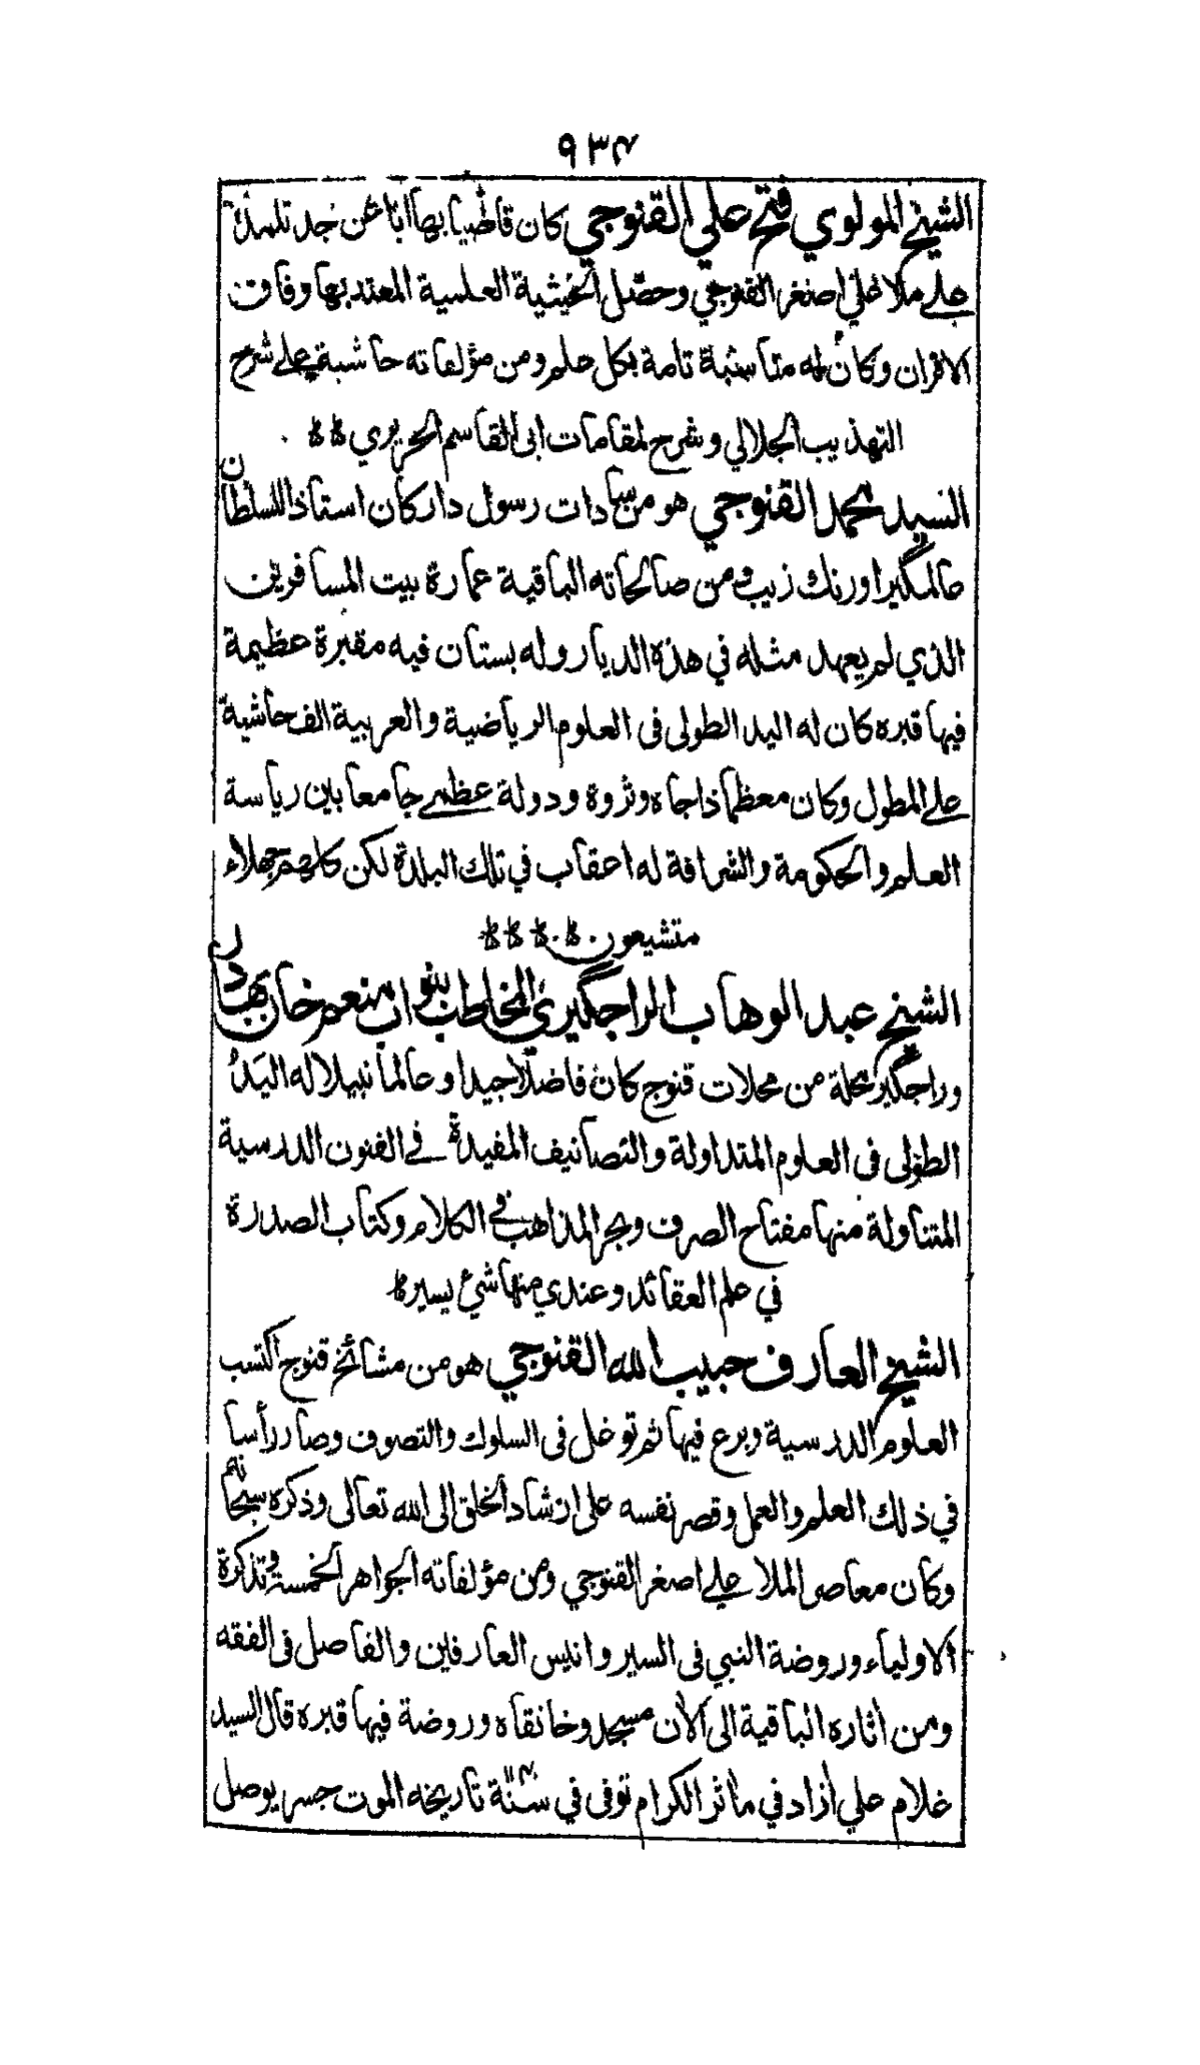 ٩٣٤
الشيخ المولوي فتح علي القنوجي كان قاضيا بها ابا عن جد تلمذ
على ملا علي اصغر القنوجي وحصل الحيثية العلمية المعتد بها وفاق
الاقران وكان له مناسبة تامة بكل علم ومن مؤلفاته حاشية على شرح
التهذيب الجلالي وشرح لمقامات ابى القاسم الحريري ۵۵
السيد محمد القنوجي هو من سادات رسول دار كان استاذ السلطان
عالمگير اورنك زيب ومن صالحاته الباقية عمارة بيت المسافرين
الذي لم يعهد مثله في هذه الديار وله بستان فيه مقبرة عظيمة
فيها قبره كان له اليد الطولى فى العلوم الرياضية والعربية الف حاشية
على المطول وكان معظما ذا جاه وثروة ودولة عظمى جامعا بين رياسة
العلم والحكومة والشرافة له اعقاب في تلك البلدة لكن كلهم جهلاء
متشيعون ۵ ۵ ۵۵
الشيخ عبد الوهاب الراجگيري المخاطب بنواب منعم خان بهادر
وراجگير محلة من محلات قنوج كان فاضلا جيدا وعالما نبيلا له اليد
الطولى فى العلوم المتداولة والتصانيف المفيدة في الفنون الدرسية
المتناولة منها مفتاح الصرف وبحر المذاهب في الكلام وكتاب الصدرة
في علم العقائد وعندي منها شيء يسير ۵
الشيخ العارف حبيب الله القنوجي هو من مشائخ قنوج اكتسب
العلوم الدرسية وبرع فيها ثم توغل فى السلوك والتصوف وصار رأسا
في ذلك العلم والعمل وقصر نفسه على ارشاد الخلق الى الله تعالى وذكره سبحانه
وكان معاصر الملا علي اصغر القنوجي ومن مؤلفاته الجواهر الخمسة وتذكرة
الاولياء وروضة النبي فى السير وانيس العارفين والفاصل فى الفقه
ومن اثاره الباقية الى الان مسجد وخانقاه وروضة فيها قبره قال السيد
غلام علي آزاد في مآثر الكرام توفى في سنة تاريخه الموت جسر يوصل